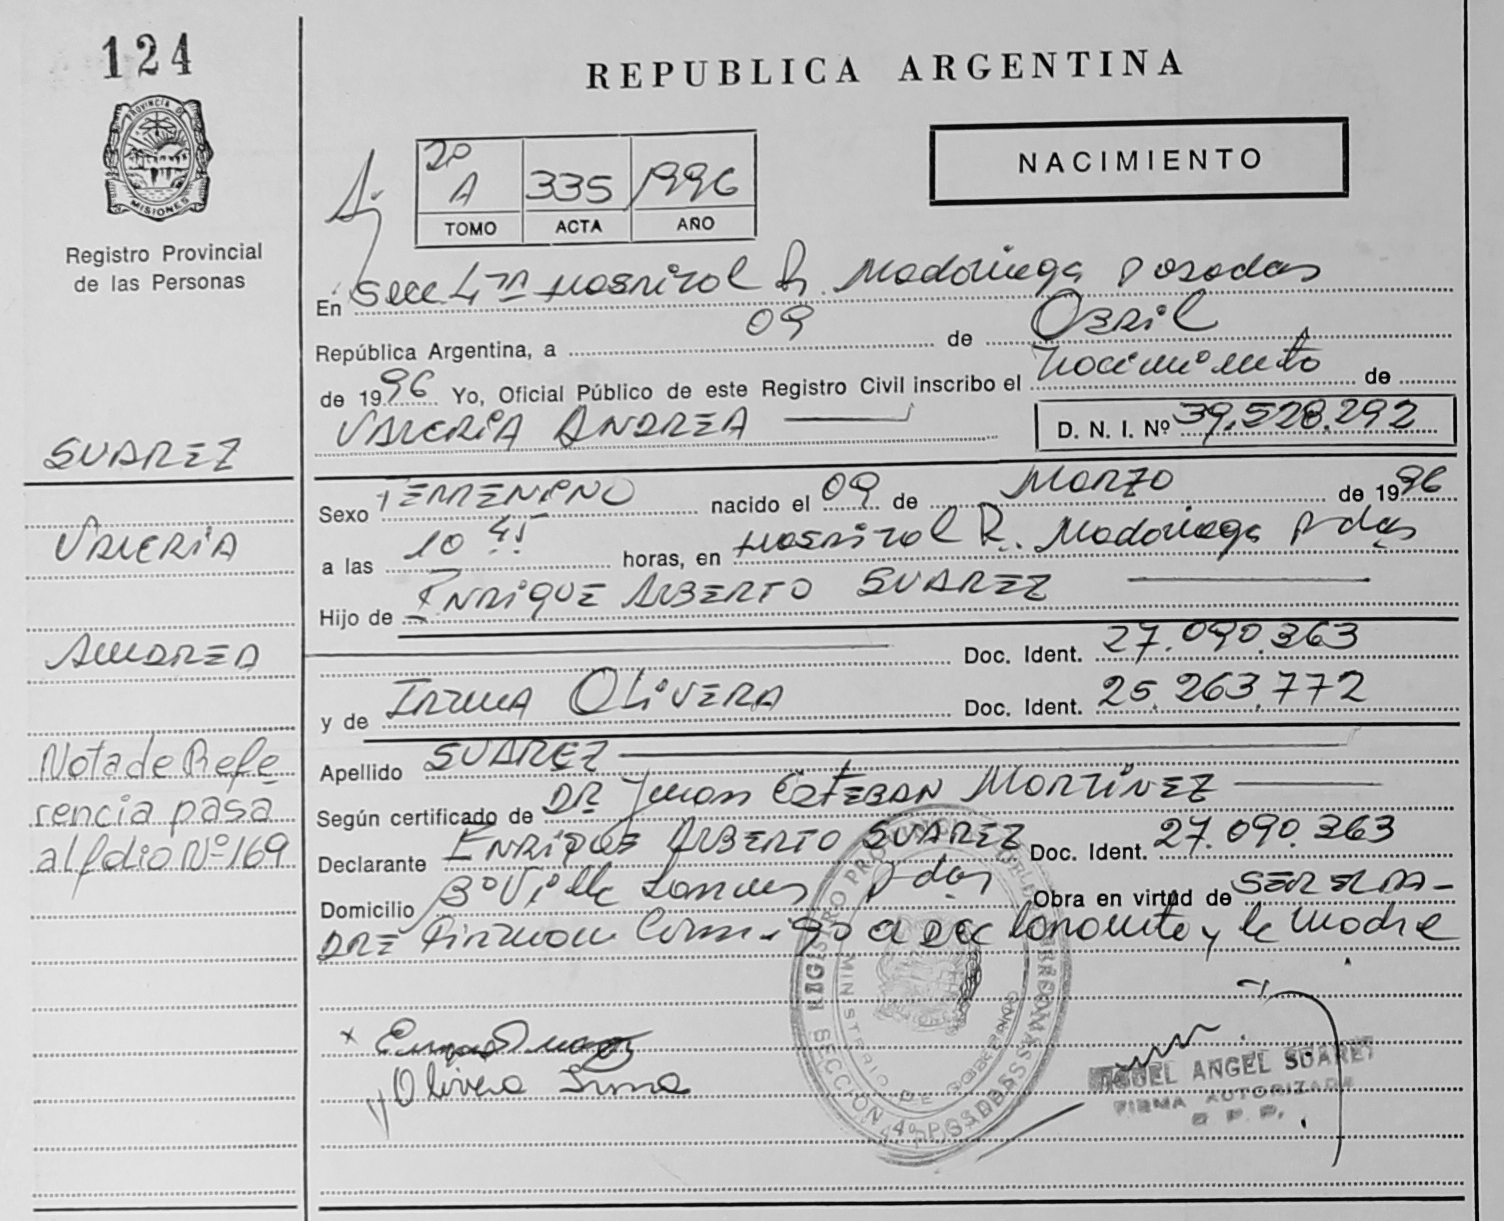 124
REPUBLICA ARGENTINA
PROVINCIA DE
MISIONES
Registro Provincial
de las Personas
2º
A 335 1996
TOMO ACTA AÑO
NACIMIENTO
En Secc 4ta Hospital R. Madariaga Posadas
República Argentina, a 09 de Abril
de 1996 Yo, Oficial Público de este Registro Civil inscribo el nacimiento de
VALERIA ANDREA D. N. I. Nº 39.528.292
SUAREZ
VALERIA
ANDREA
Nota de Refe
rencia pasa
al folio Nº 169
Sexo FEMENINO nacido el 09 de MARZO de 1996
a las 10 45 horas, en Hospital R. Madariaga Pdas
Hijo de ENRIQUE ALBERTO SUAREZ
Doc. Ident. 27.090.363
y de IRMA OLIVERA Doc. Ident. 25.263.772
Apellido SUAREZ
Según certificado de DR Juan ESTEBAN MARTINEZ
Declarante ENRIQUE ALBERTO SUAREZ Doc. Ident. 27.090.363
Domicilio Bº Villa Pdas Obra en virtud de SER EL PA-
DRE Firman y la Madre
Olivera Irma
REGISTRO PROVINCIAL
MINISTERIO DE GOBIERNO
SECCIÓN 4º POSADAS
MIGUEL ANGEL SUAREZ
FIRMA AUTORIZADA